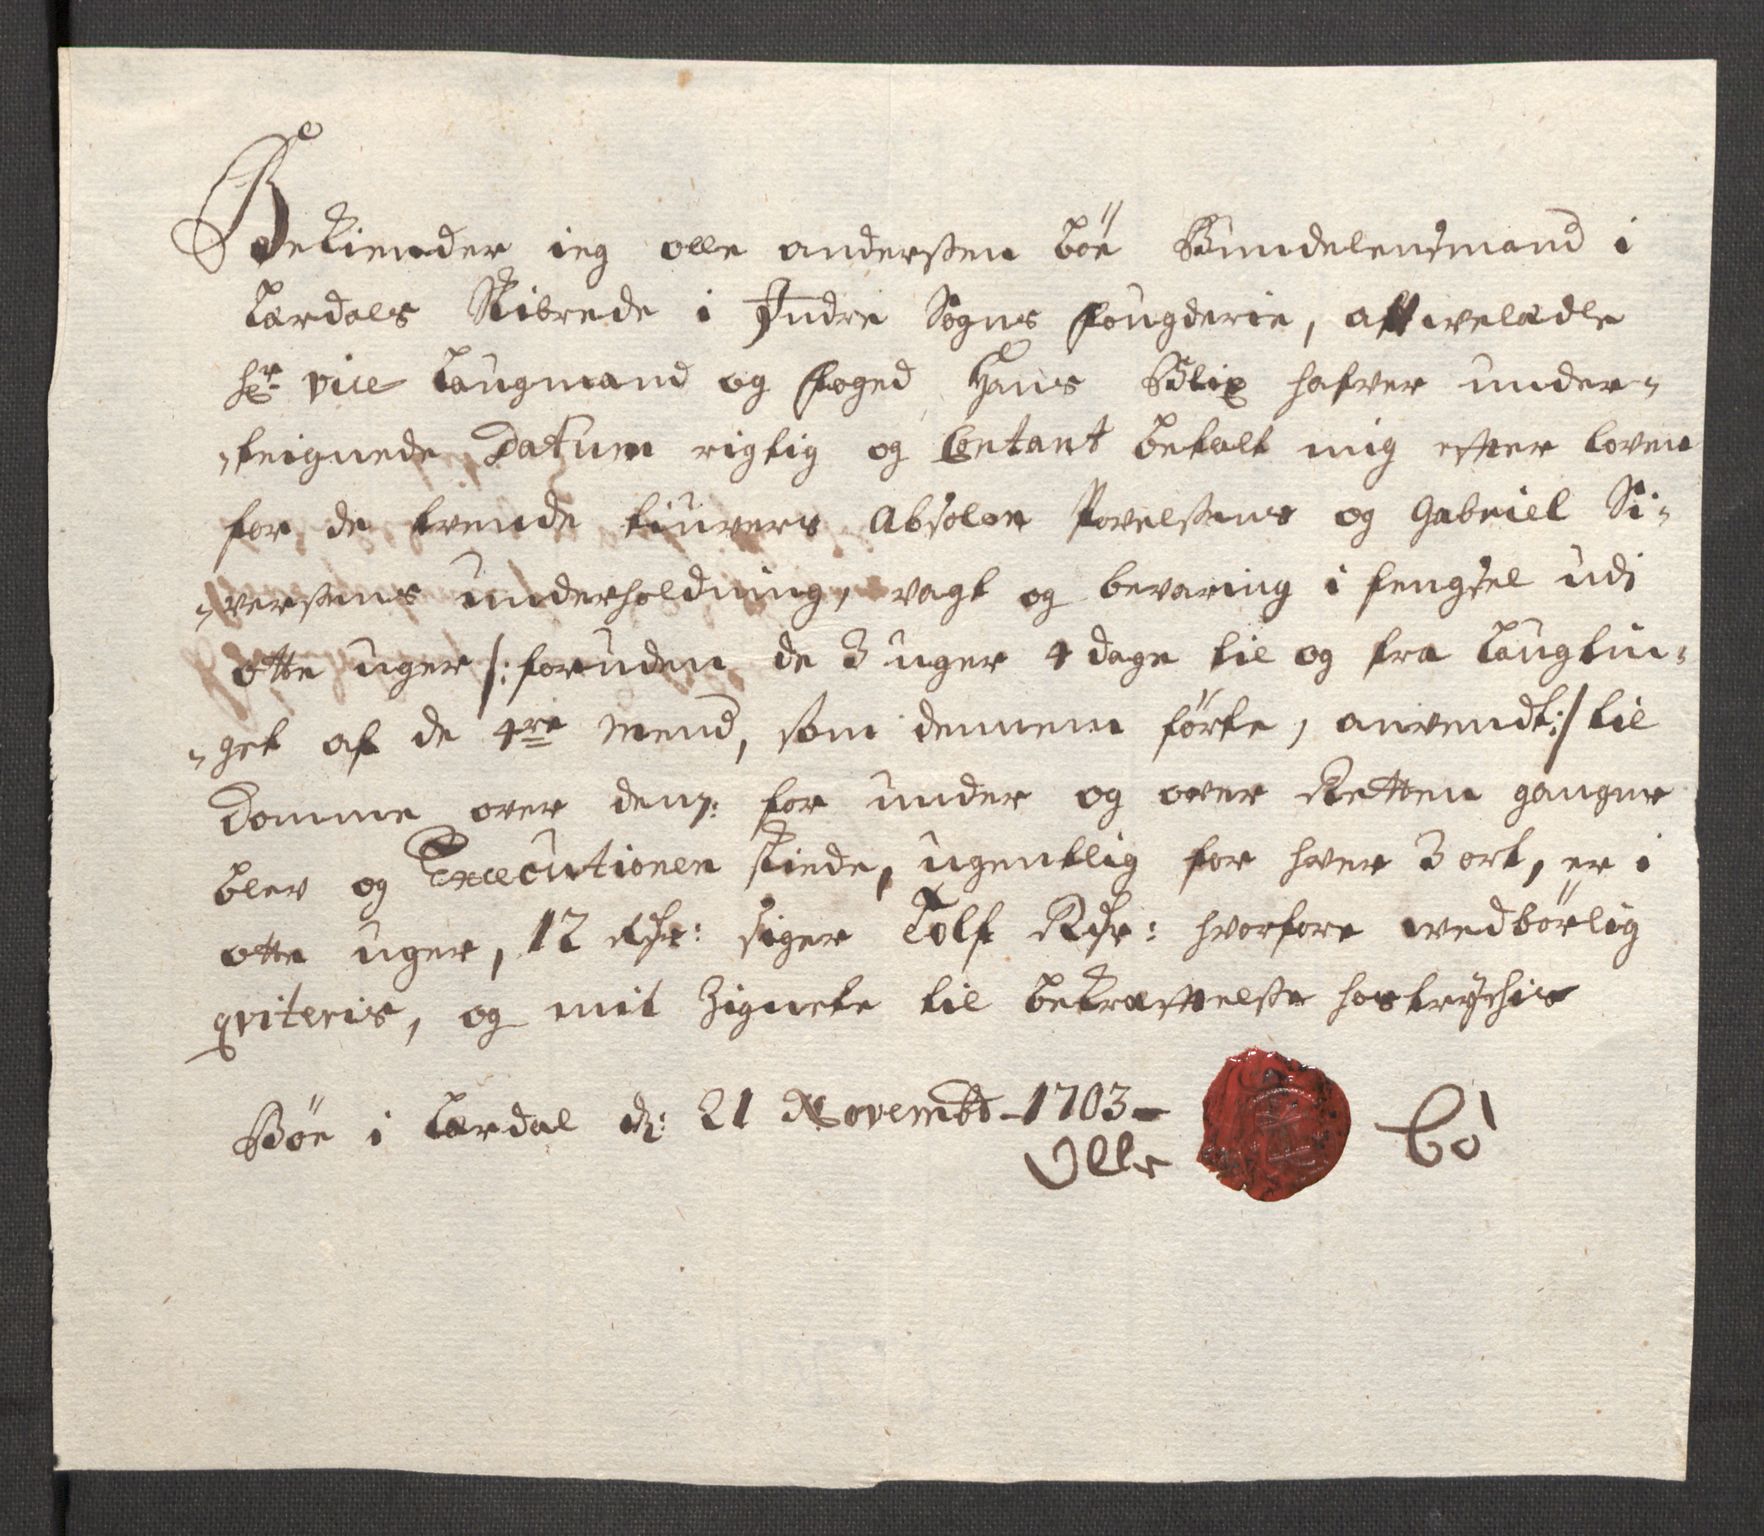 Bekiender ieg olle anderssen böe Bundelensmand i
Lærdals Skibrede i Indre Sogns fougderie, att welædle
Hr vice Laugmand og foged Hans Blix hafver under-
-teignede Datum rigtig og Contant betalt mig efter loven
for de tvende tiuvers Absolon Povelssens og Gabriel Si-
-verssens underholdning, vagt og bevaring i fengsel udi
otte uger /: foruden de 3 uger 4 dage til og fra Laugtin-
-get af de 4re Mend, som dennem förte, anvendt :/ til
Domme over dem: for under og over Retten gangne
blev og Executionen skiede, ugentlig for hver 3 ort, er i
otte uger, 12 Rdr: siger Tolf Rdr: hvorfore wedbörlig
qviteris, og mit Zignete til bekræfftelsse hostrychis
Böe i Lærdal d: 21 Novembr 1703
Olle Bö